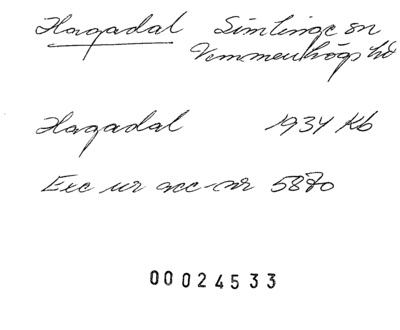 Hagadal Simlinge sn
Vemmenhögs hd
Hagadal 1934 Kb
Exc ur acc-nr 5870
00024533